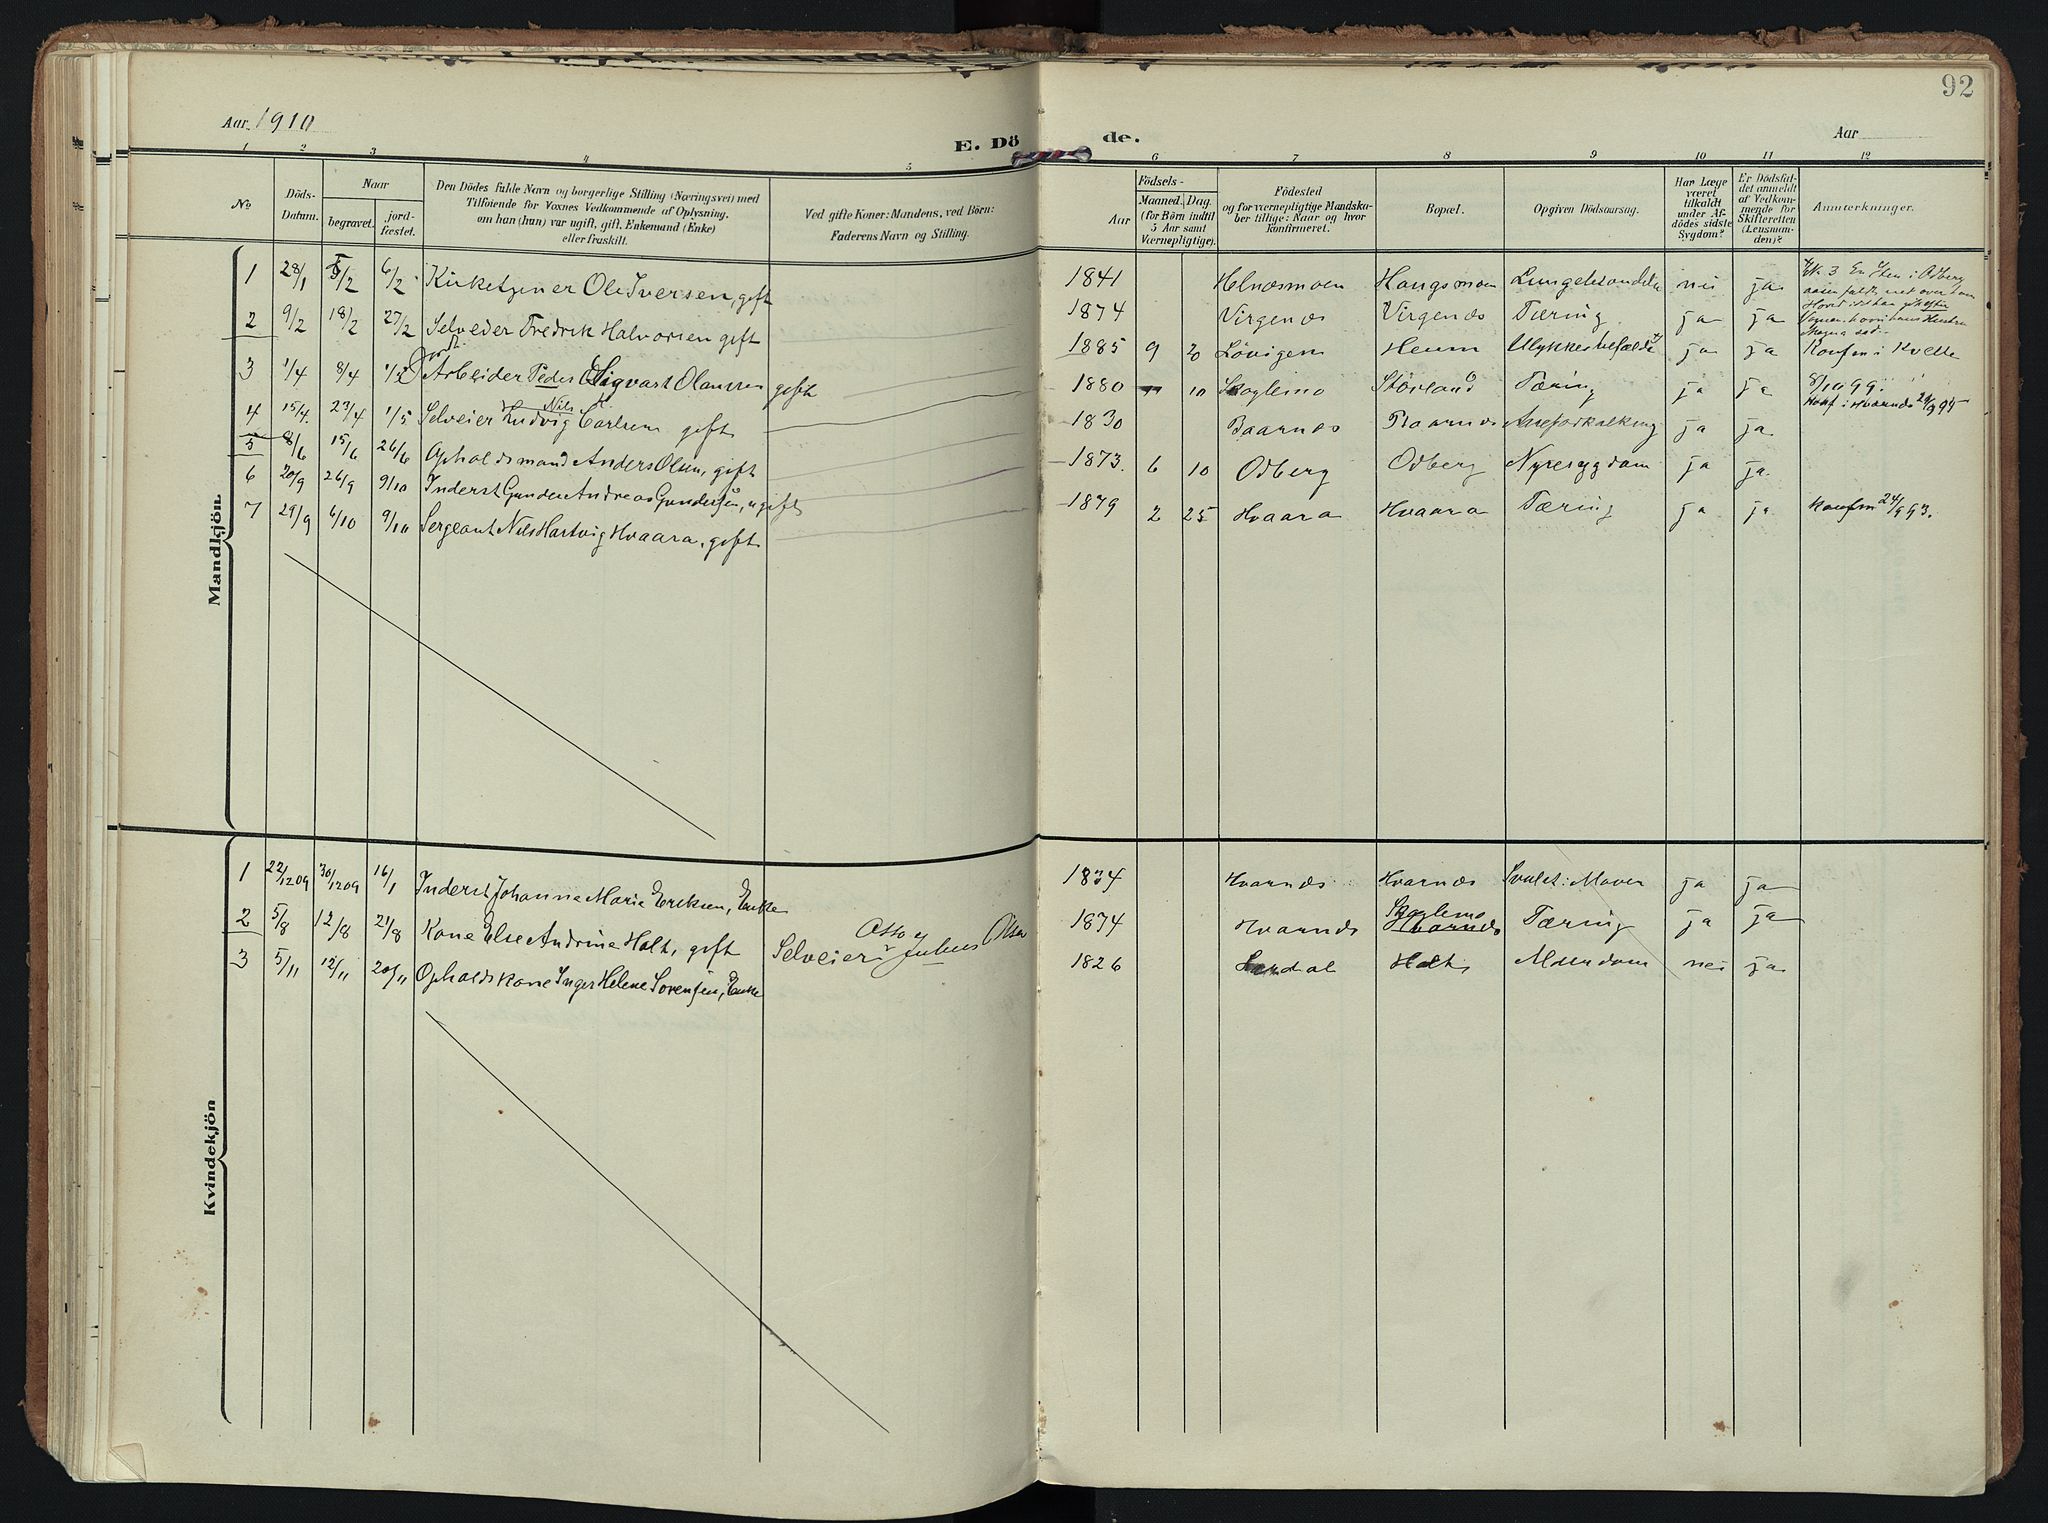 92
Aar 1910
E. Döde.
Aar
1 2 3 4 5 6 7 8 9 10 11 12
No
Döds-Datum.
Naar
begravet.
jordfæstet.
Den Dödes fulde Navn og borgerlige Stilling (Næringsvei) med
Tilföiende for Voxnes Vedkommende af Oplysning.
om han (hun) var ugift, gift, Enkemand (Enke)
eller fraskilt.
Ved gifte Koner: Mandens, ved Börn:
Faderens Navn og Stilling.
Födsels-
Aar
Maaned. Dag.
(for Börn indtil
5 Aar samt
Værnepligtige).
Födested
og for værnepligtige Mandska-
ber tillige: Naar og hvor
konfirmeret.
Bopæl.
Opgiven Dödsaarsag.
Har Læge
været
tilkaldt
under Af-
dödes sidste
Sygdom?
Er Dödsfal-
det anmeldt
af Vedkom-
mende for
Skifteretten
(Lensman-
den)?
Anmærkninger.
Mandkjön
1 28/1 5/2 6/2 Kirketjener Ole Iversen, gift 1841 Helnæsmoen Haugsmoen nei ja
2 9/2 18/2 27/2 Selveier Fredrik Halvorsen gift 1874 Virgenes Virgenes Tæring ja ja
3 1/4 8/4 Arbeider Peder Sigvart Olaussen gift 1885 9 20 Lövigen Heum Ulykkestilfælde ja ja Konfm i Kvelle
8/10 99.
4 15/4 23/4 1/5 Selveier Nils Ludvig Carlsen gift 1880 10 Skoglemo Störland Tæring ja ja Konf. i Hvarnes
5 8/6 15/6 26/6 Opholdsmand Anders Olsen, gift 1830 Baarnes Baarnes Aareforkalkning ja ja
6 20/9 26/9 9/10 Inderst Gunder Andreas Gundersen, ugift 1873. 6 10 Odberg Odberg Nyresygdom ja ja.
7 29/9 6/10 9/10 Sergeant Nils Hartvig Hvaara, gift 1879 2 25 Hvaara Hvaara Tæring ja ja Konfm 24/9 93.
Kvindekjön
1 22/12 09 30/12 09 16/1 Inderst Johanne Marie Eriksen, Enke 1834 Hvarnes Hvarnes Svulst i Maven ja ja
2 5/8 12/8 21/8 Kone Else Andrine Holt, gift Selveier Julius Olsen 1874 Hvarnes Skoglemo Tæring ja ja
3 5/11 12/11 20/11 Opholdskone Inger Helene Sorensen, Enke 1826 Holt Alderdom nei ja